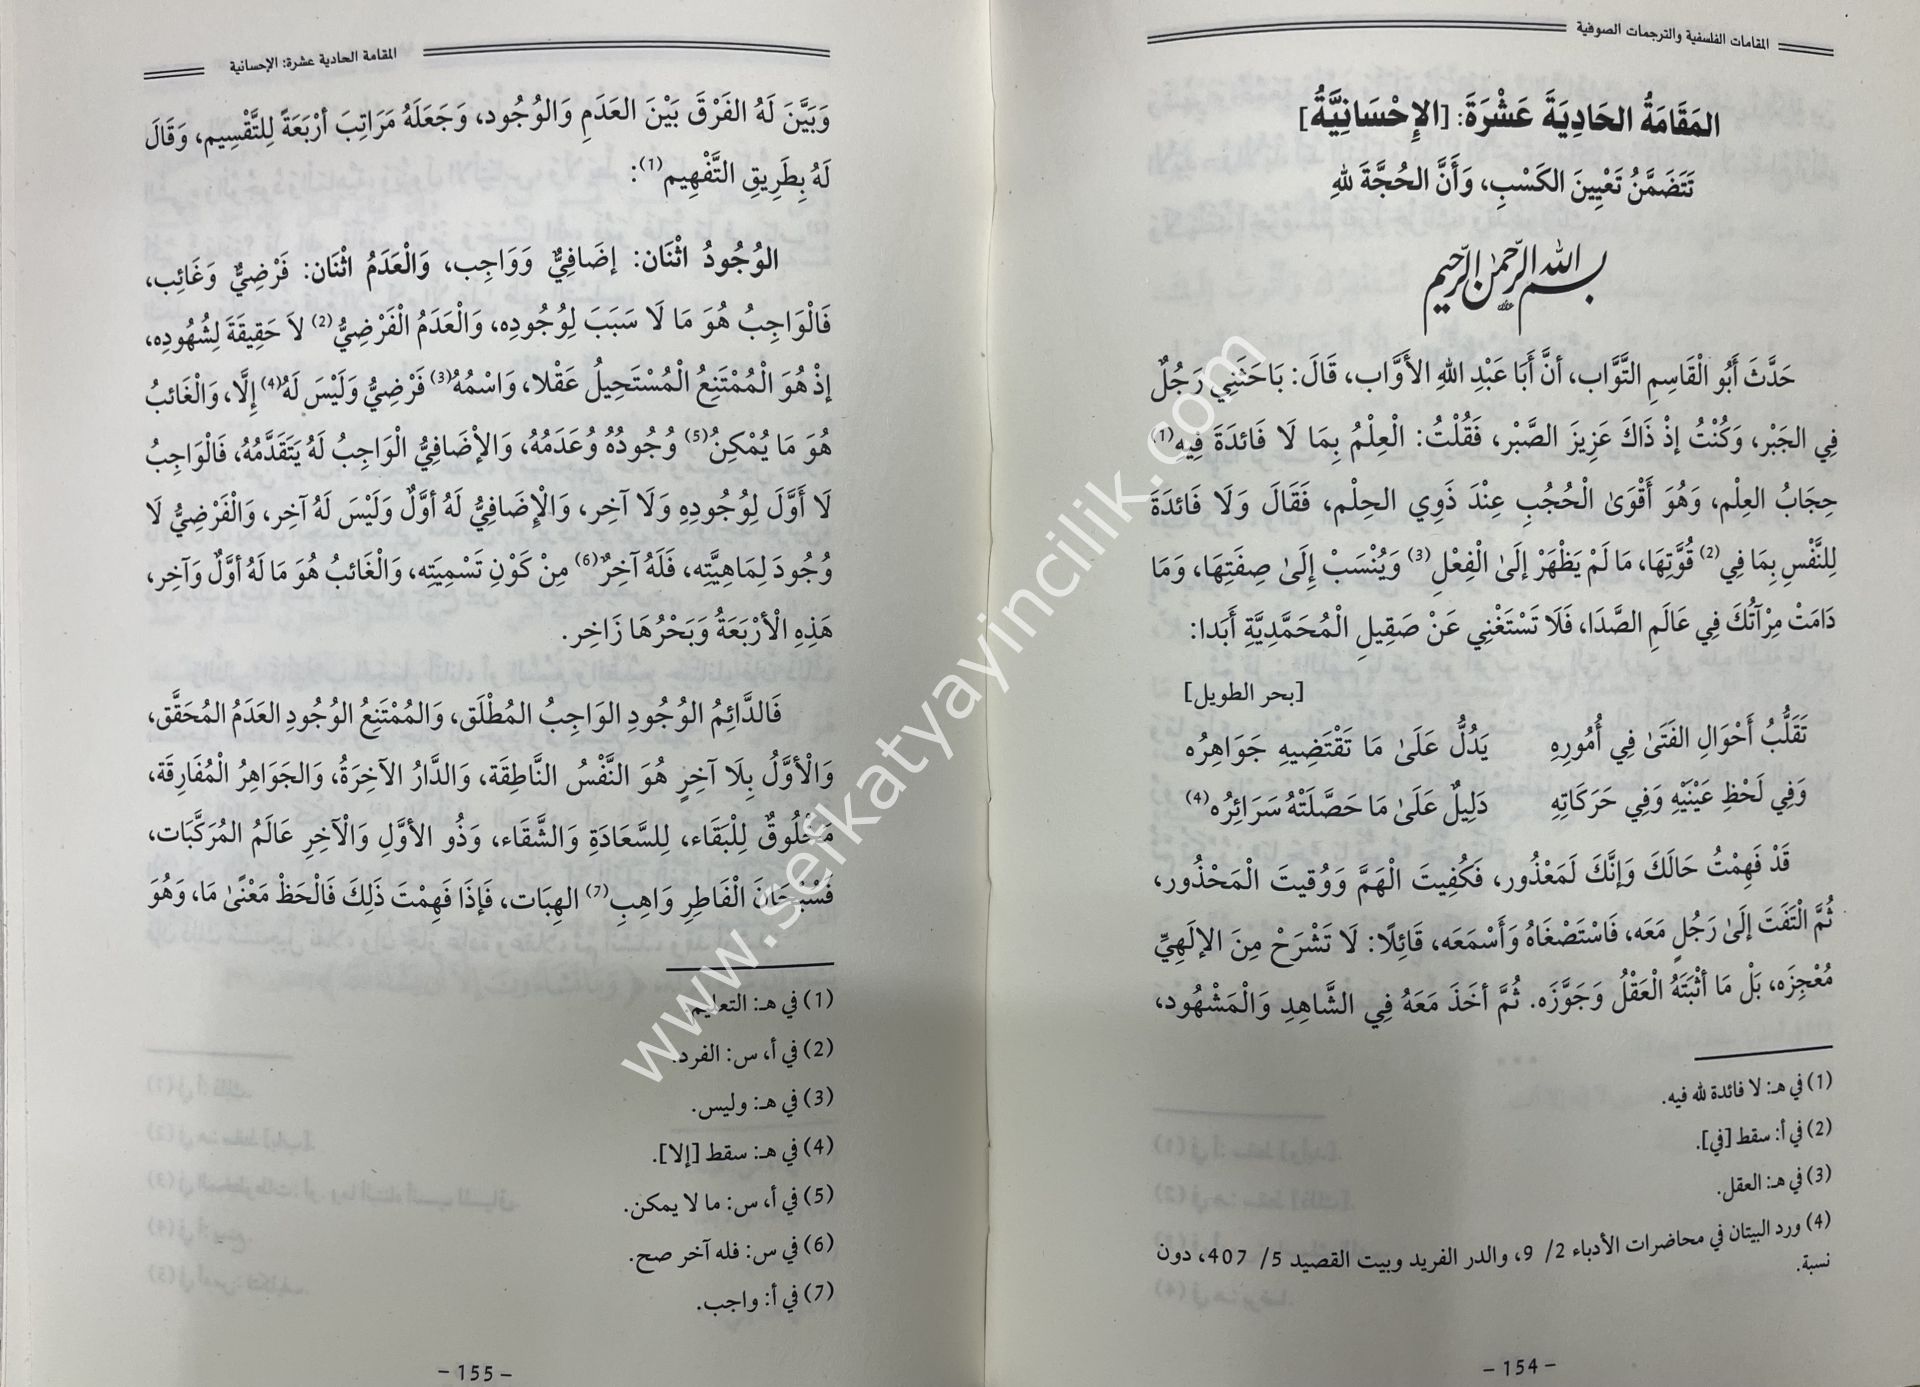 المقامات الفلسفية والترجمات الصوفية
المَقَامَةُ الحَادِيَةَ عَشْرَةَ: [الإِحْسَانِيَّةُ]
تَتَضَمَّنُ تَعْيِينَ الكَسْبِ، وَأَنَّ الحُجَّةَ لله
بسم الله الرحمن الرحيم
حَدَّثَ أَبُو الْقَاسِمِ التَّوَّاب، أنَّ أَبَا عَبْدِ اللهِ الأَوَّاب، قَالَ: بَاحَثَنِي رَجُلٌ
فِي الجَبْر، وَكُنْتُ إذْ ذَاكَ عَزِيزَ الصَّبْر، فَقُلْتُ: الْعِلْمُ بِمَا لَا فَائدَةَ فِيهِ(1)
حِجَابُ العِلْم، وَهُوَ أَقْوَىٰ الْحُجُبِ عِنْدَ ذَوِي الحِلْم، فَقَالَ وَلَا فَائدَةَ
لِلنَّفْسِ بِمَا فِي(2) قُوَّتِهَا، مَا لَمْ يَظْهَرْ إلَىٰ الْفِعْلِ(3) وَيُنْسَبْ إِلَىٰ صِفَتِهَا، وَمَا
دَامَتْ مِرْآتُكَ فِي عَالَمِ الصَّدَا، فَلَا تَسْتَغْنِي عَنْ صَقِيلِ الْمُحَمَّدِيَّةِ أَبَدا:
[بحر الطويل]
تَقَلُّبُ أَحْوَالِ الفَتَىٰ فِي أُمُورِهِ يَدُلُّ عَلَىٰ مَا تَقْتَضِيهِ جَوَاهِرُه
وَفِي لَحْظِ عَيْنَيْهِ وَفِي حَرَكَاتِهِ دَلِيلٌ عَلَىٰ مَا حَصَّلَتْهُ سَرَائِرُه(4)
قَدْ فَهِمْتُ حَالَكَ وَإنَّكَ لَمَعْذُور، فَكُفِيتَ الْهَمَّ وَوُقِيتَ الْمَحْذُور،
ثُمَّ الْتَفَتَ إلَىٰ رَجُلٍ مَعَه، فَاسْتَصْغَاهُ وَأَسْمَعَه، قَائِلًا: لَا تَشْرَحْ مِنَ الإلَهِيِّ
مُعْجِزَه، بَلْ مَا أثْبَتَهُ الْعَقْلُ وَجَوَّزَه. ثُمَّ أخَذَ مَعَهُ فِي الشَّاهِدِ وَالْمَشْهُود،
(1) في هـ: لا فائدة لله فيه.
(2) في أ: سقط [في].
(3) في هـ: العقل.
(4) ورد البيتان في محاضرات الأدباء 2/ 9، والدر الفريد وبيت القصيد 5/ 407، دون
نسبة.
- 154 -
المقامة الحادية عشرة: الإحسانية
وَبَيَّنَ لَهُ الفَرْقَ بَيْنَ العَدَمِ وَالْوُجُود، وَجَعَلَهُ مَرَاتِبَ أرْبَعَةً لِلتَّقْسِيم، وَقَالَ
لَهُ بِطَرِيقِ التَّفْهِيم(1):
الوُجُودُ اثْنَان: إضَافِيٌّ وَوَاجِب، وَالْعَدَمُ اثْنَان: فَرْضِيٌّ وَغَائِب،
فَالْوَاجِبُ هُوَ مَا لَا سَبَبَ لِوُجُودِه، وَالْعَدَمُ الْفَرْضِيُّ(2) لاَ حَقِيقَةَ لِشُهُودِه،
إذْ هُوَ الْمُمْتَنِعُ الْمُسْتَحِيلُ عَقْلا، وَاسْمُهُ(3) فَرْضِيُّ وَلَيْسَ لَهُ(4) إلَّا، وَالْغَائبُ
هُوَ مَا يُمْكِنُ(5) وُجُودُهُ وُعَدَمُهُ، وَالإضَافِيُّ الْوَاجِبُ لَهُ يَتَقَدَّمُهُ، فَالْوَاجِبُ
لَا أَوَّلَ لِوُجُودِهِ وَلَا آخِر، وَالْإِضَافِيُّ لَهُ أوَّلٌ وَلَيْسَ لَهُ آخِر، وَالْفَرْضِيُّ لَا
وُجُودَ لِمَاهِيَّتِه، فَلَهُ آخِرٌ(6) مِنْ كَوْنِ تَسْمِيَتِه، وَالْغَائبُ هُوَ مَا لَهُ أوَّلٌ وَآخِر،
هَذِهِ الْأرْبَعَةُ وَبَحْرُهَا زَاخِر.
فَالدَّائِمُ الوُجُودِ الوَاجِبُ المُطْلَق، وَالمُمْتَنِعُ الوُجُودِ العَدَمُ المُحَقَّق،
وَالْأَوَّلُ بِلَا آخِرٍ هُوَ النَّفْسُ النَّاطِقَة، وَالدَّارُ الآخِرَةُ، وَالجَوَاهِرُ الْمُفَارِقَة،
مَخْلُوقٌ لِلْبَقَاء، لِلسَّعَادَةِ وَالشَّقَاء، وَذُو الأوَّلِ وَالْآخِرِ عَالَمُ المُرَكَّبَات،
فَسُبْحَانَ الْفَاطِرِ وَاهِبِ(7) الهِبَات، فَإذَا فَهِمْتَ ذَلِكَ فَالْحَظْ مَعْنًىٰ مَا، وَهُوَ
(1) في هـ: التعليم.
(2) في أ، س: الفرد.
(3) في هـ: وليس.
(4) في هـ: سقط [إلا].
(5) في أ، س: ما لا يمكن.
(6) في س: فله آخر صح.
(7) في أ: واجب.
- 155 -
www.sefkatyayincilik.com